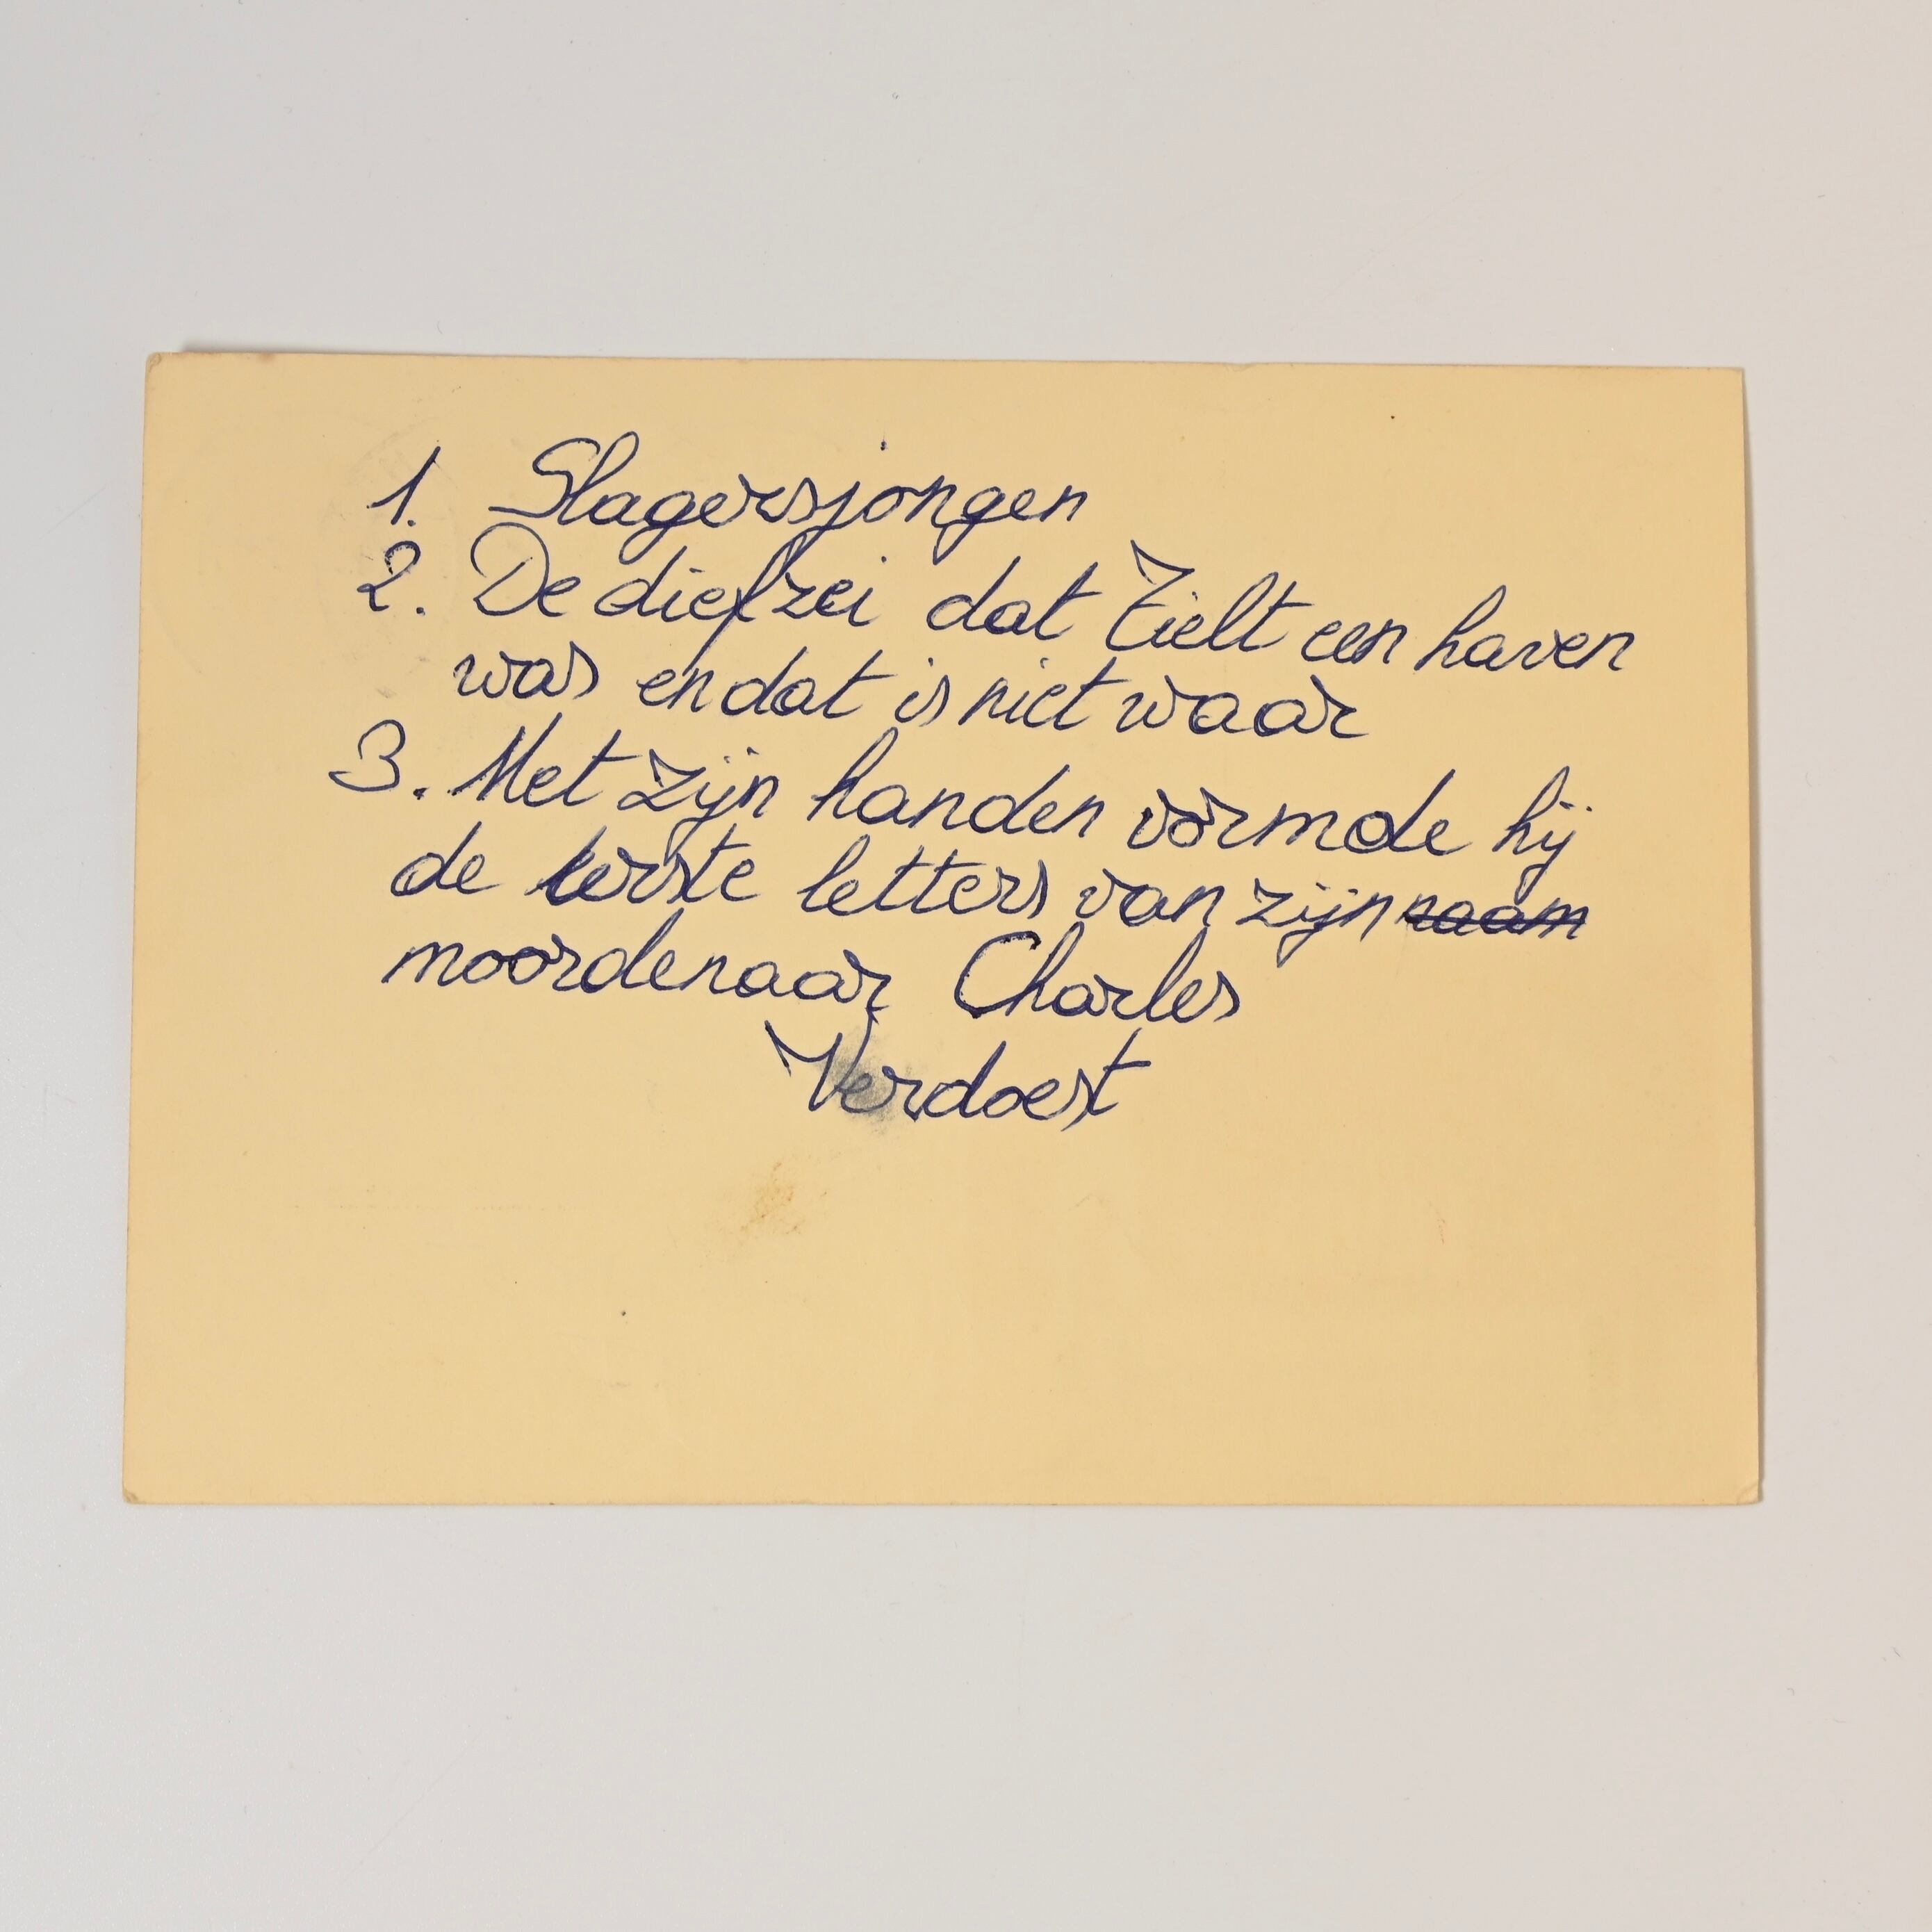 1. Slagersjongen
2. De dief zei dat Tielt een haven
was en dat is niet waar
3. Met zijn handen vormde hij
de eerste letters van zijn naam
moordenaar Charles
Verdoest